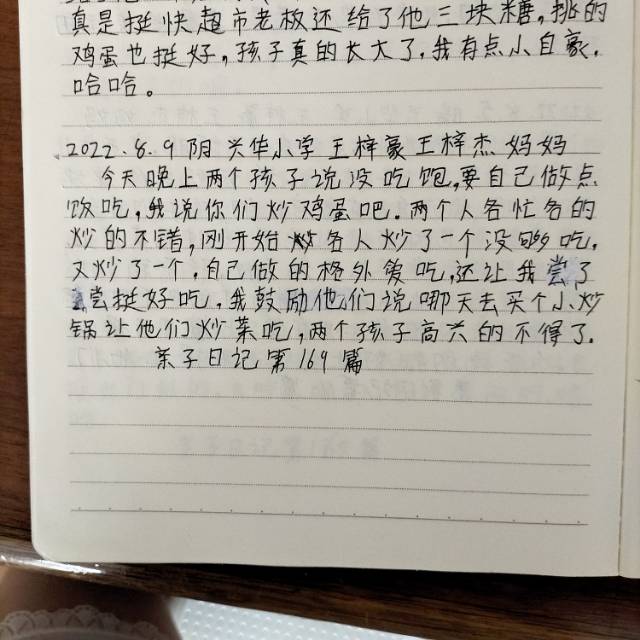 真是挺快超市老板还给了他三块糖,挑的
鸡蛋也挺好,孩子真的长大了,我有点小自豪,
哈哈。
2022.8.9阴 兴华小学 王梓豪王梓杰妈妈
今天晚上两个孩子说没吃饱,要自己做点
饭吃,我说你们炒鸡蛋吧.两个人各忙各的
炒的不错,刚开始各人炒了一个没够吃,
又炒了一个,自己做的格外爱吃,还让我尝了
尝挺好吃,我鼓励他们说哪天去买个小炒
锅让他们炒菜吃,两个孩子高兴的不得了.
亲子日记第169篇